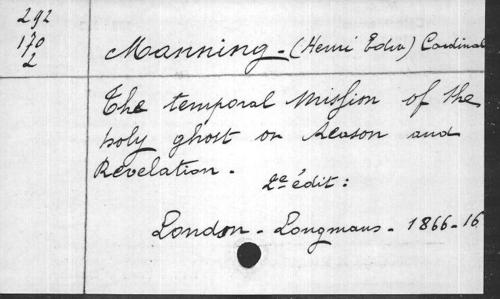 292
170
2
Manning - (Henri Edw) Cardinal
The temporal Mission of the
holy ghost or Reason and
Revelation.
2e édit:
London - Longmans - 1866-16